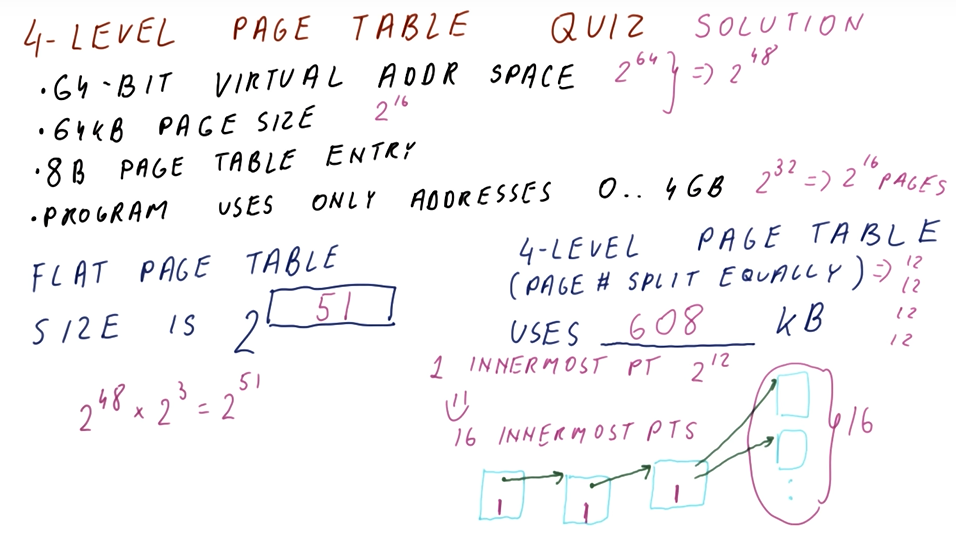 4-LEVEL PAGE TABLE QUIZ SOLUTION
·64-BIT VIRTUAL ADDR SPACE 2^64 } => 2^48
·64kB PAGE SIZE 2^16
·8B PAGE TABLE ENTRY
·PROGRAM USES ONLY ADDRESSES 0..4GB 2^32 => 2^16 PAGES
FLAT PAGE TABLE
SIZE IS 2^51
2^48 × 2^3 = 2^51
4-LEVEL PAGE TABLE
(PAGE # SPLIT EQUALLY) => 12
12
12
12
USES 608 kB
1 INNERMOST PT 2^12
16 INNERMOST PTS
1 1 1
⋮
16